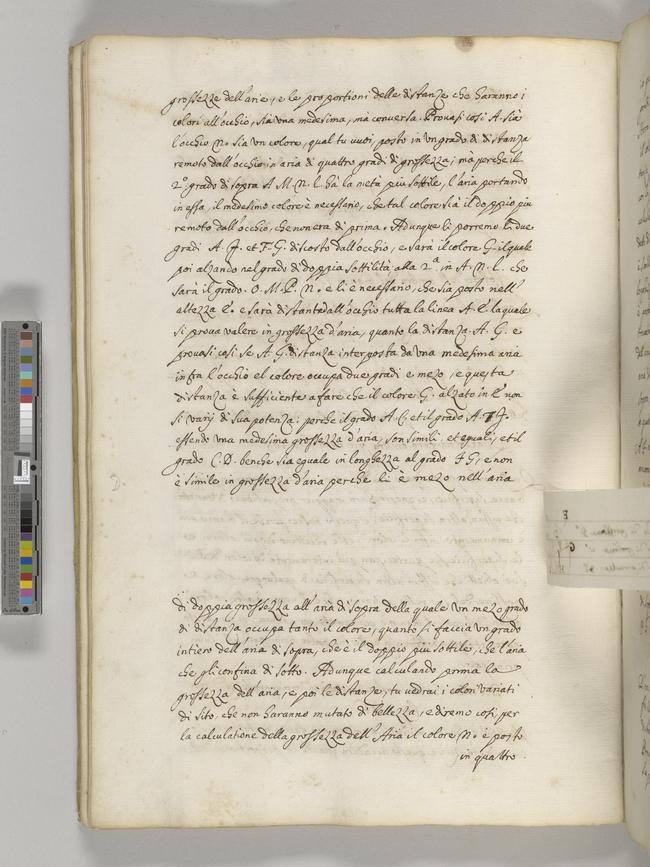 grossezze dell'arie, e le proportioni delle distanze che haranno i
colori all'occhio, sia una medesima, mà conversa. Provasi così A. sia
l'occhio N. sia un colore, qual tu vuoi, posto in un grado di distanza
remoto dall'occhio in aria di quattro gradi di grossezza; mà perche il
2.º grado di sopra A M. N. L. hà la metà più sottile, l'aria portando
in essa, il medesimo colore è necessario, che tal colore sia il doppio più
remoto dall'occhio, che non era di prima. Adunque li porremo li due
gradi A. F. et F. G. discosto dall'occhio, e sarà il colore G. il quale
poi alzando nel grado di doppia sottilità, alla 2.ª in A. N. L. che
sarà il grado. O. M. P. N. e li è necessario, che sia posto nell'
altezza E. e sarà distante dall'occhio tutta la linea A. E. la quale
si prova valere in grossezza d'aria, quanto la distanza. A. G. e
provasi così se A. G. distanza interposta da una medesima aria
infra l'occhio el colore occupa due gradi e mezo, e questa
distanza è sufficiente a fare che il colore G. alzato in E non
si varij di sua potenza: perche il grado A. C. et il grado A. F.
essendo una medesima grossezza d'aria, son simili, et equali, et il
grado C. D. benche sia eguale in longhezza al grado F G, e non
è simile in grossezza d'aria perche li è mezo nell'aria
di doppia grossezza all'aria di sopra della quale un mezo grado
di distanza occupa tanto il colore, quanto si faccia un grado
intiero dell'aria di sopra, che è il doppio più sottile, che l'aria
che gli confina di sotto. Adunque calculando prima la
grossezza dell'aria, e poi le distanze, tu vedrai i colori variati
di sito, che non haranno mutato di bellezza, e diremo così, per
la calculatione della grossezza dell'Aria il colore N. è posto
in quattro
E
G